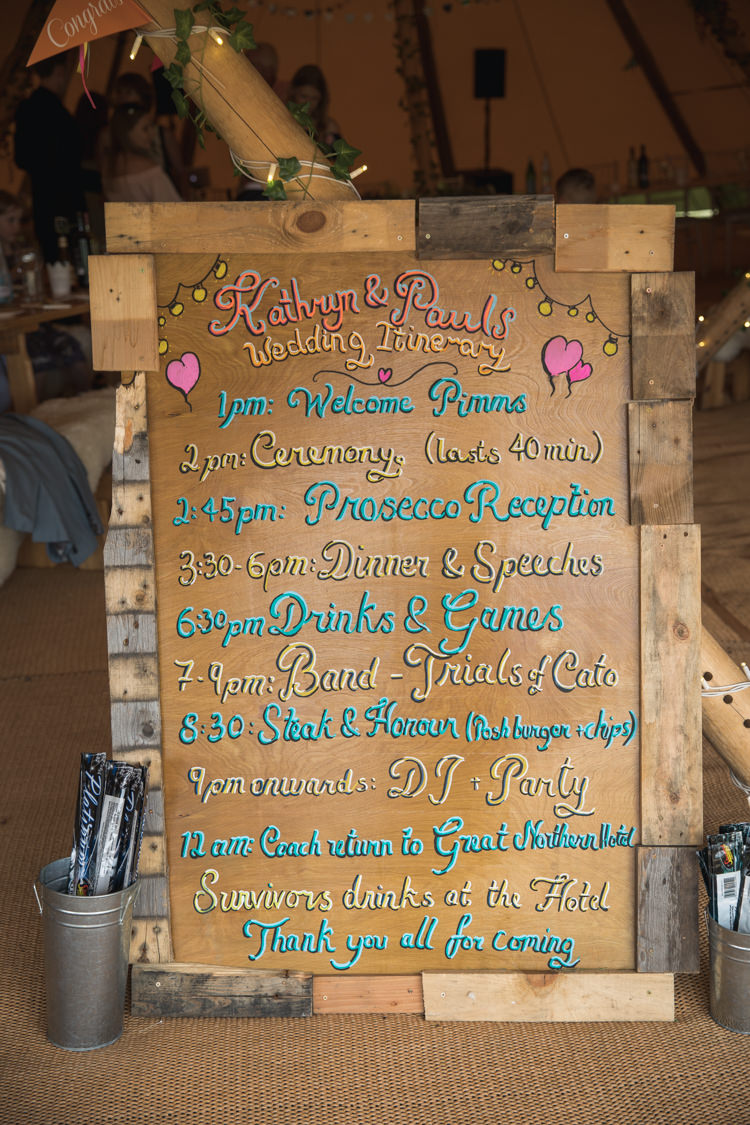 Congrats
Kathryn & Pauls
Wedding Itinerary
1pm: Welcome Pimms
2pm: Ceremony. (lasts 40 min)
2:45pm: Prosecco Reception
3:30-6pm: Dinner & Speeches
6:30pm Drinks & Games
7-9pm: Band - Trials of Cato
8:30: Steak & Honour (Posh burger + chips)
9pm onwards: DJ + Party
12 am: Coach return to Great Northern Hotel
Survivors drinks at the Hotel
Thank you all for coming